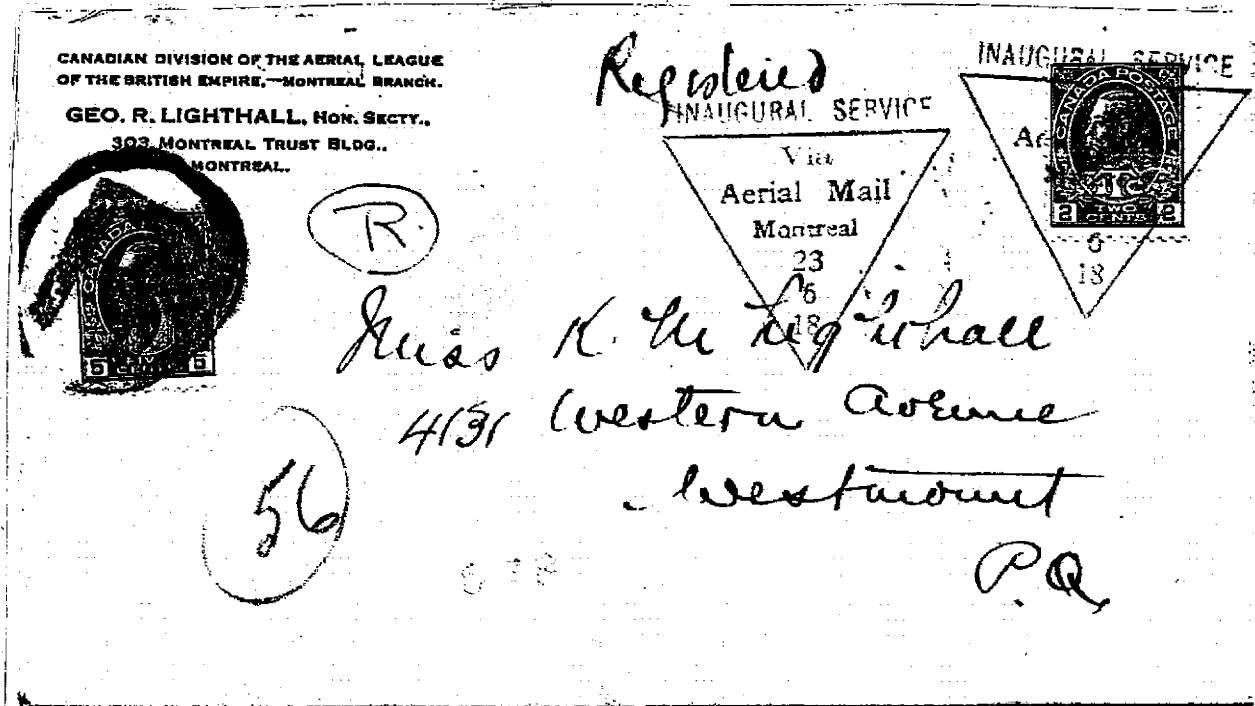 CANADIAN DIVISION OF THE AERIAL LEAGUE
OF THE BRITISH EMPIRE,—MONTREAL BRANCH.
GEO. R. LIGHTHALL, HON. SECTY.,
303 MONTREAL TRUST BLDG.,
MONTREAL.
Registered
INAUGURAL SERVICE
Via
Aerial Mail
Montreal
23
6
18
INAUGURAL SERVICE
6
18
CANADA POSTAGE
2 TWO CENTS 2
CANADA
5 CENTS 5
R.
Miss K. M Lighthall
4131 Western Avenue
Westmount
P.Q.
56